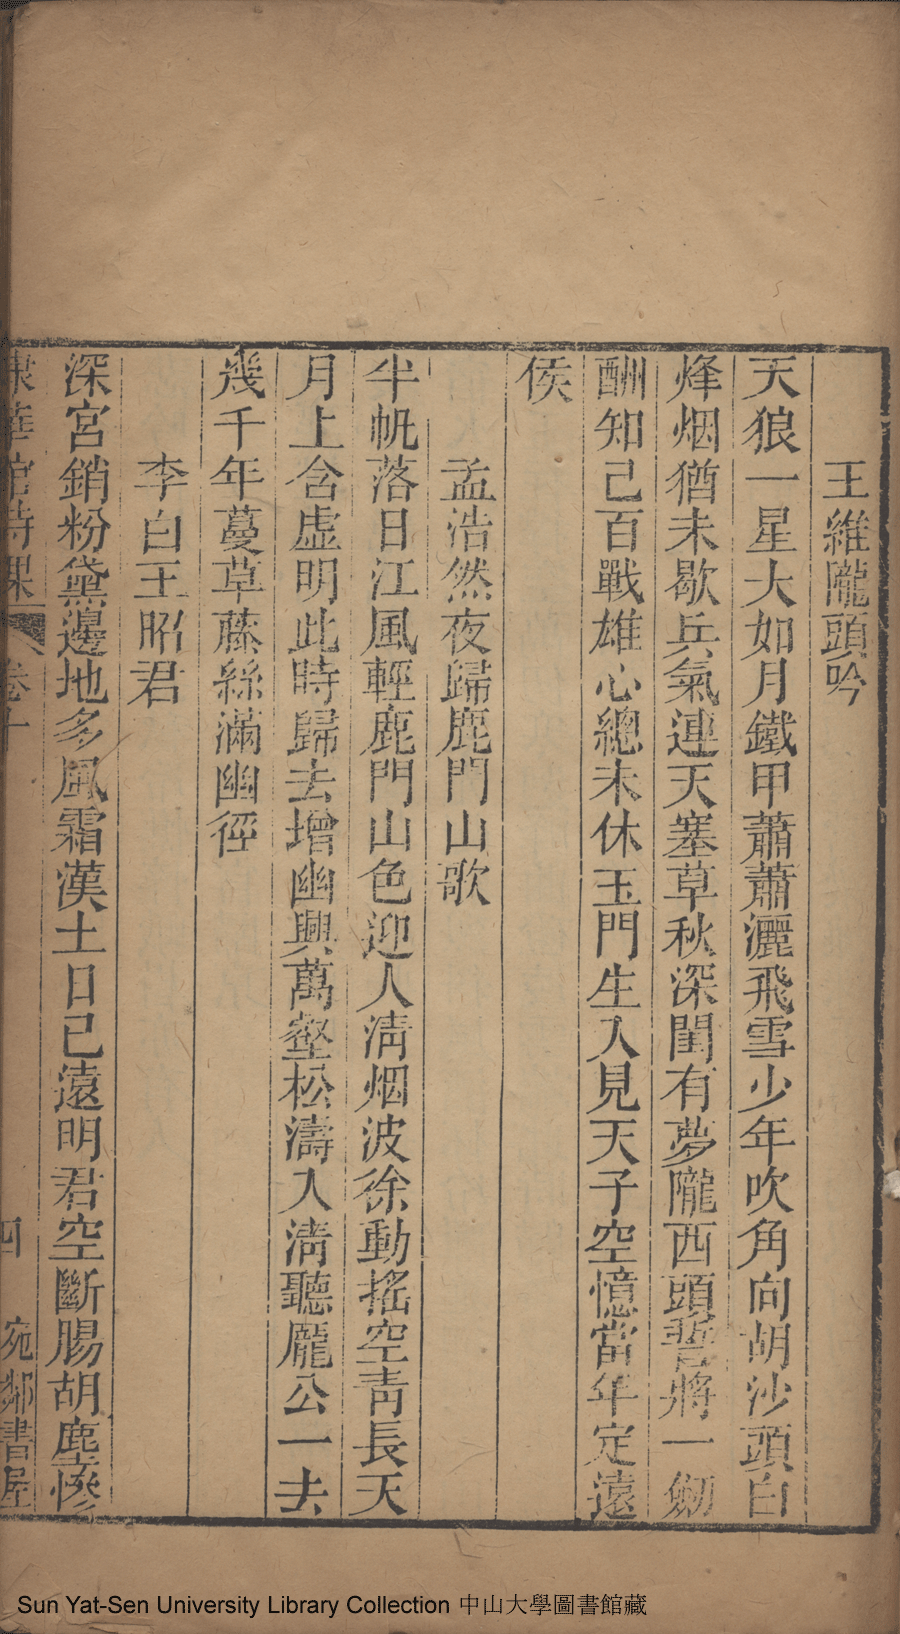 王維隴頭吟
天狼一星大如月鐵甲蕭蕭灑飛雪少年吹角向胡沙頭白
烽烟猶未歇兵氣連天塞草秋深閨有夢隴西頭誓將一劒
酬知己百戰雄心總未休玉門生入見天子空憶當年定遠
侯
孟浩然夜歸鹿門山歌
半帆落日江風輕鹿門山色迎人清烟波徐動搖空青長天
月上含虛明此時歸去增幽興萬壑松濤入清聽龐公一去
幾千年蔓草藤絲滿幽徑
李白王昭君
深宮銷粉黛邊地多風霜漢土日已遠明君空斷腸胡塵慘
棣華館詩課 卷十 四 宛鄰書屋
Sun Yat-Sen University Library Collection 中山大學圖書館藏